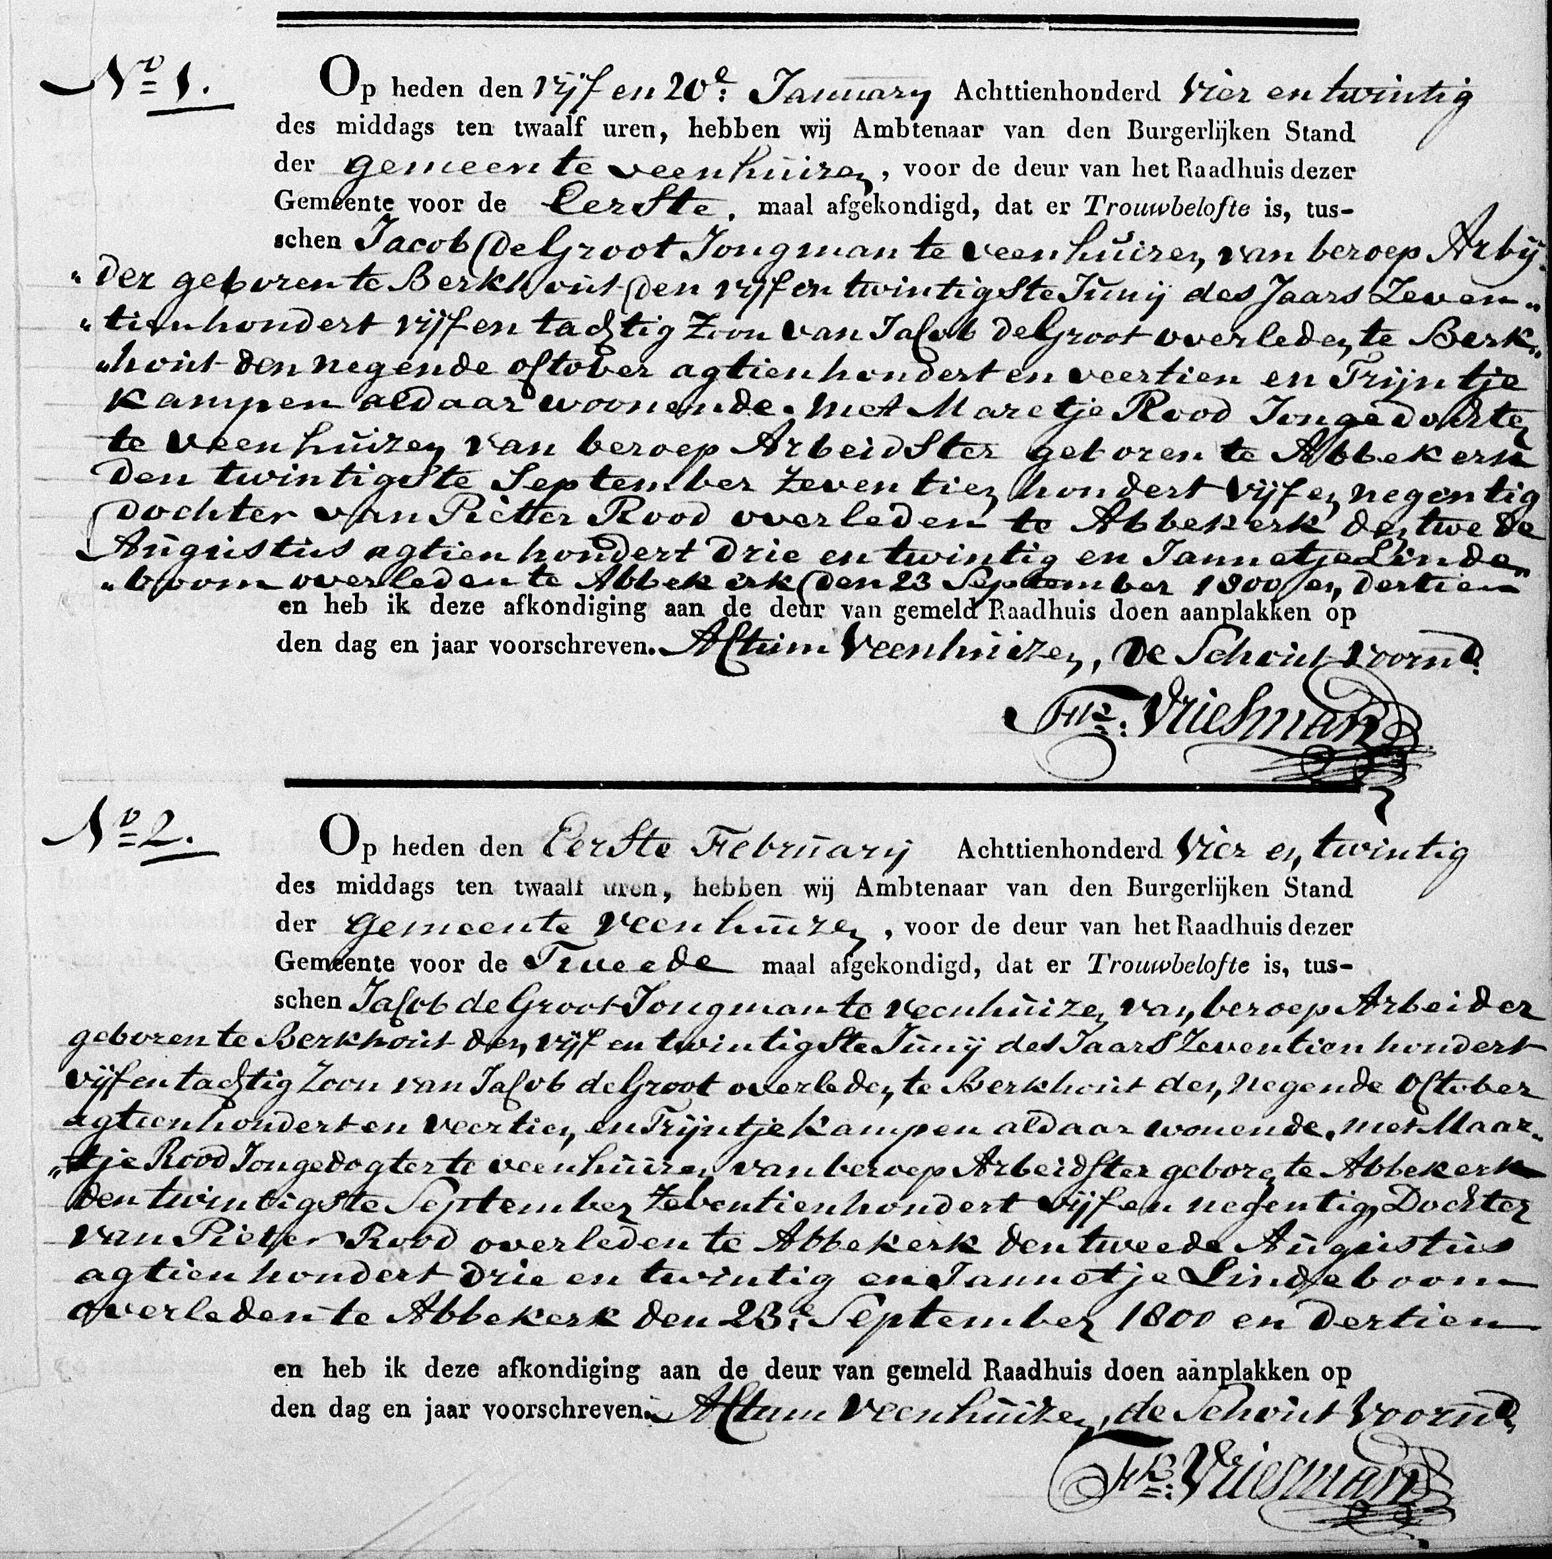 No 1.
Op heden den vijf en 20e: January Achttienhonderd Vier en twintig
des middags ten twaalf uren, hebben wij Ambtenaar van den Burgerlijken Stand
der gemeente veenhuizen, voor de deur van het Raadhuis dezer
Gemeente voor de Eerste. maal afgekondigd, dat er Trouwbelofte is, tus-
schen Jacob de Groot Jongman te veenhuizen van beroep Arbij„
„der geboren te Berkhout den vijf en twintigste Junij des Jaars Zeven„
„tienhondert vijf en tachtig Zoon van Jacob de Groot overleden te Berk„
„hout den negende october agtienhondert en veertien en Trijntje
Kampen aldaar woonende. met Maretje Rood Jongedochter
te veenhuizen van beroep Arbeidster geboren te Abbekerk
den twintigste September Zeventien hondert vijf en negentig
dochter van Pietter Rood overleden te Abbekerk den twede
Augustus agtien hondert drie en twintig en Jannetje Linde„
„boom overleden te Abbekerk den 23 September 1800 en dertien
en heb ik deze afkondiging aan de deur van gemeld Raadhuis doen aanplakken op
den dag en jaar voorschreven. Actum Veenhuizen, De Schout voornd.
Fk: Vriesman
No 2.
Op heden den Eerste February Achttienhonderd Vier en twintig
des middags ten twaalf uren, hebben wij Ambtenaar van den Burgerlijken Stand
der gemeente Veenhuizen, voor de deur van het Raadhuis dezer
Gemeente voor de Tweede maal afgekondigd, dat er Trouwbelofte is, tus-
schen Jacob de Groot Jongman te veenhuizen van beroep Arbeider
geboren te Berkhout den vijf en twintigste Junij des Jaars Zeventien hondert
vijf en tachtig Zoon van Jacob de Groot overleden te Berkhout den negende October
agtienhondert en veertien en Trijntje Kampen aldaar wonende. met Maar„
„tje Rood Jongedogter te veenhuizen van beroep Arbeidster geboren te Abbekerk
den twintigste September Zeventienhondert vijf en negentig Dochter
van Pieter Rood overleden te Abbekerk den tweede Augustus
agtien hondert drie en twintig en Jannetje Lindeboom
overleden te Abbekerk den 23e September 1800 en dertien
en heb ik deze afkondiging aan de deur van gemeld Raadhuis doen aanplakken op
den dag en jaar voorschreven. Actum Veenhuizen, de Schout Voornd.
Fk: Vriesman